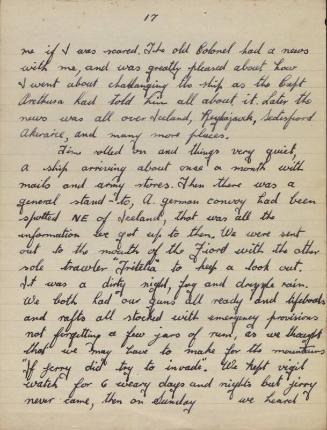 17
me if I was scared. The old Colonel had a news
with me, and was greatly pleased about how
I went about challanging the ship as the Capt
Arethusa had told him all about it. Later the
news was all over Iceland, Reykajavik, Sedisfiord
Akuraice, and many more places.
Time rolled on and things very quiet,
a ship arriving about once a month with
mails and army stores. Then there was a
general stand-to, A. german convoy had been
spotted NE of Iceland, that was all the
information we got up to then. We were sent
out to the mouth of the Fiord with the other
sole trawler "Fritetia" to keep a look out.
It was a dirty night, fog and drizzle rain.
We both had our guns all ready and lifeboats
and rafts all stocked with emergency provisions
not forgetting a few jars of rum, as we thought
that we may have to make for the mountains
"If jerry did" try to invade. We kept vigil
watch for 6 weary days and nights but jerry
never came, then on Sunday we heard